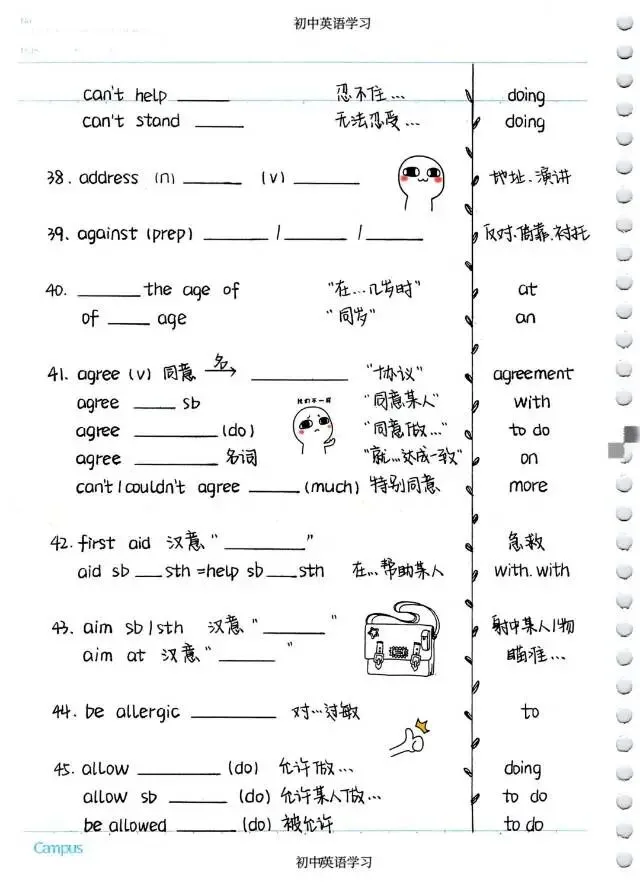 初中英语学习
can't help ______ 忍不住... doing
can't stand ______ 无法忍受... doing
38. address (n) ______ (v) ______ 地址、演讲
39. against (prep) ______ / ______ / ______ 反对、倚靠、衬托
40. ______ the age of "在...几岁时" at
of ______ age "同岁" an
41. agree (v) 同意 名→ ______ "协议" agreement
agree ______ sb "同意某人" with
我们不一样
agree ______ (do) "同意做..." to do
agree ______ 名词 "就...达成一致" on
can't / couldn't agree ______ (much) 特别同意 more
42. first aid 汉意 "______" 急救
aid sb ______ sth = help sb ______ sth 在...帮助某人 with. with
43. aim sb / sth 汉意 "______" 射中某人/物
aim at 汉意 "______" 瞄准...
44. be allergic ______ 对...过敏 to
45. allow ______ (do) 允许做... doing
allow sb ______ (do) 允许某人做... to do
be allowed ______ (do) 被允许 to do
Campus
初中英语学习